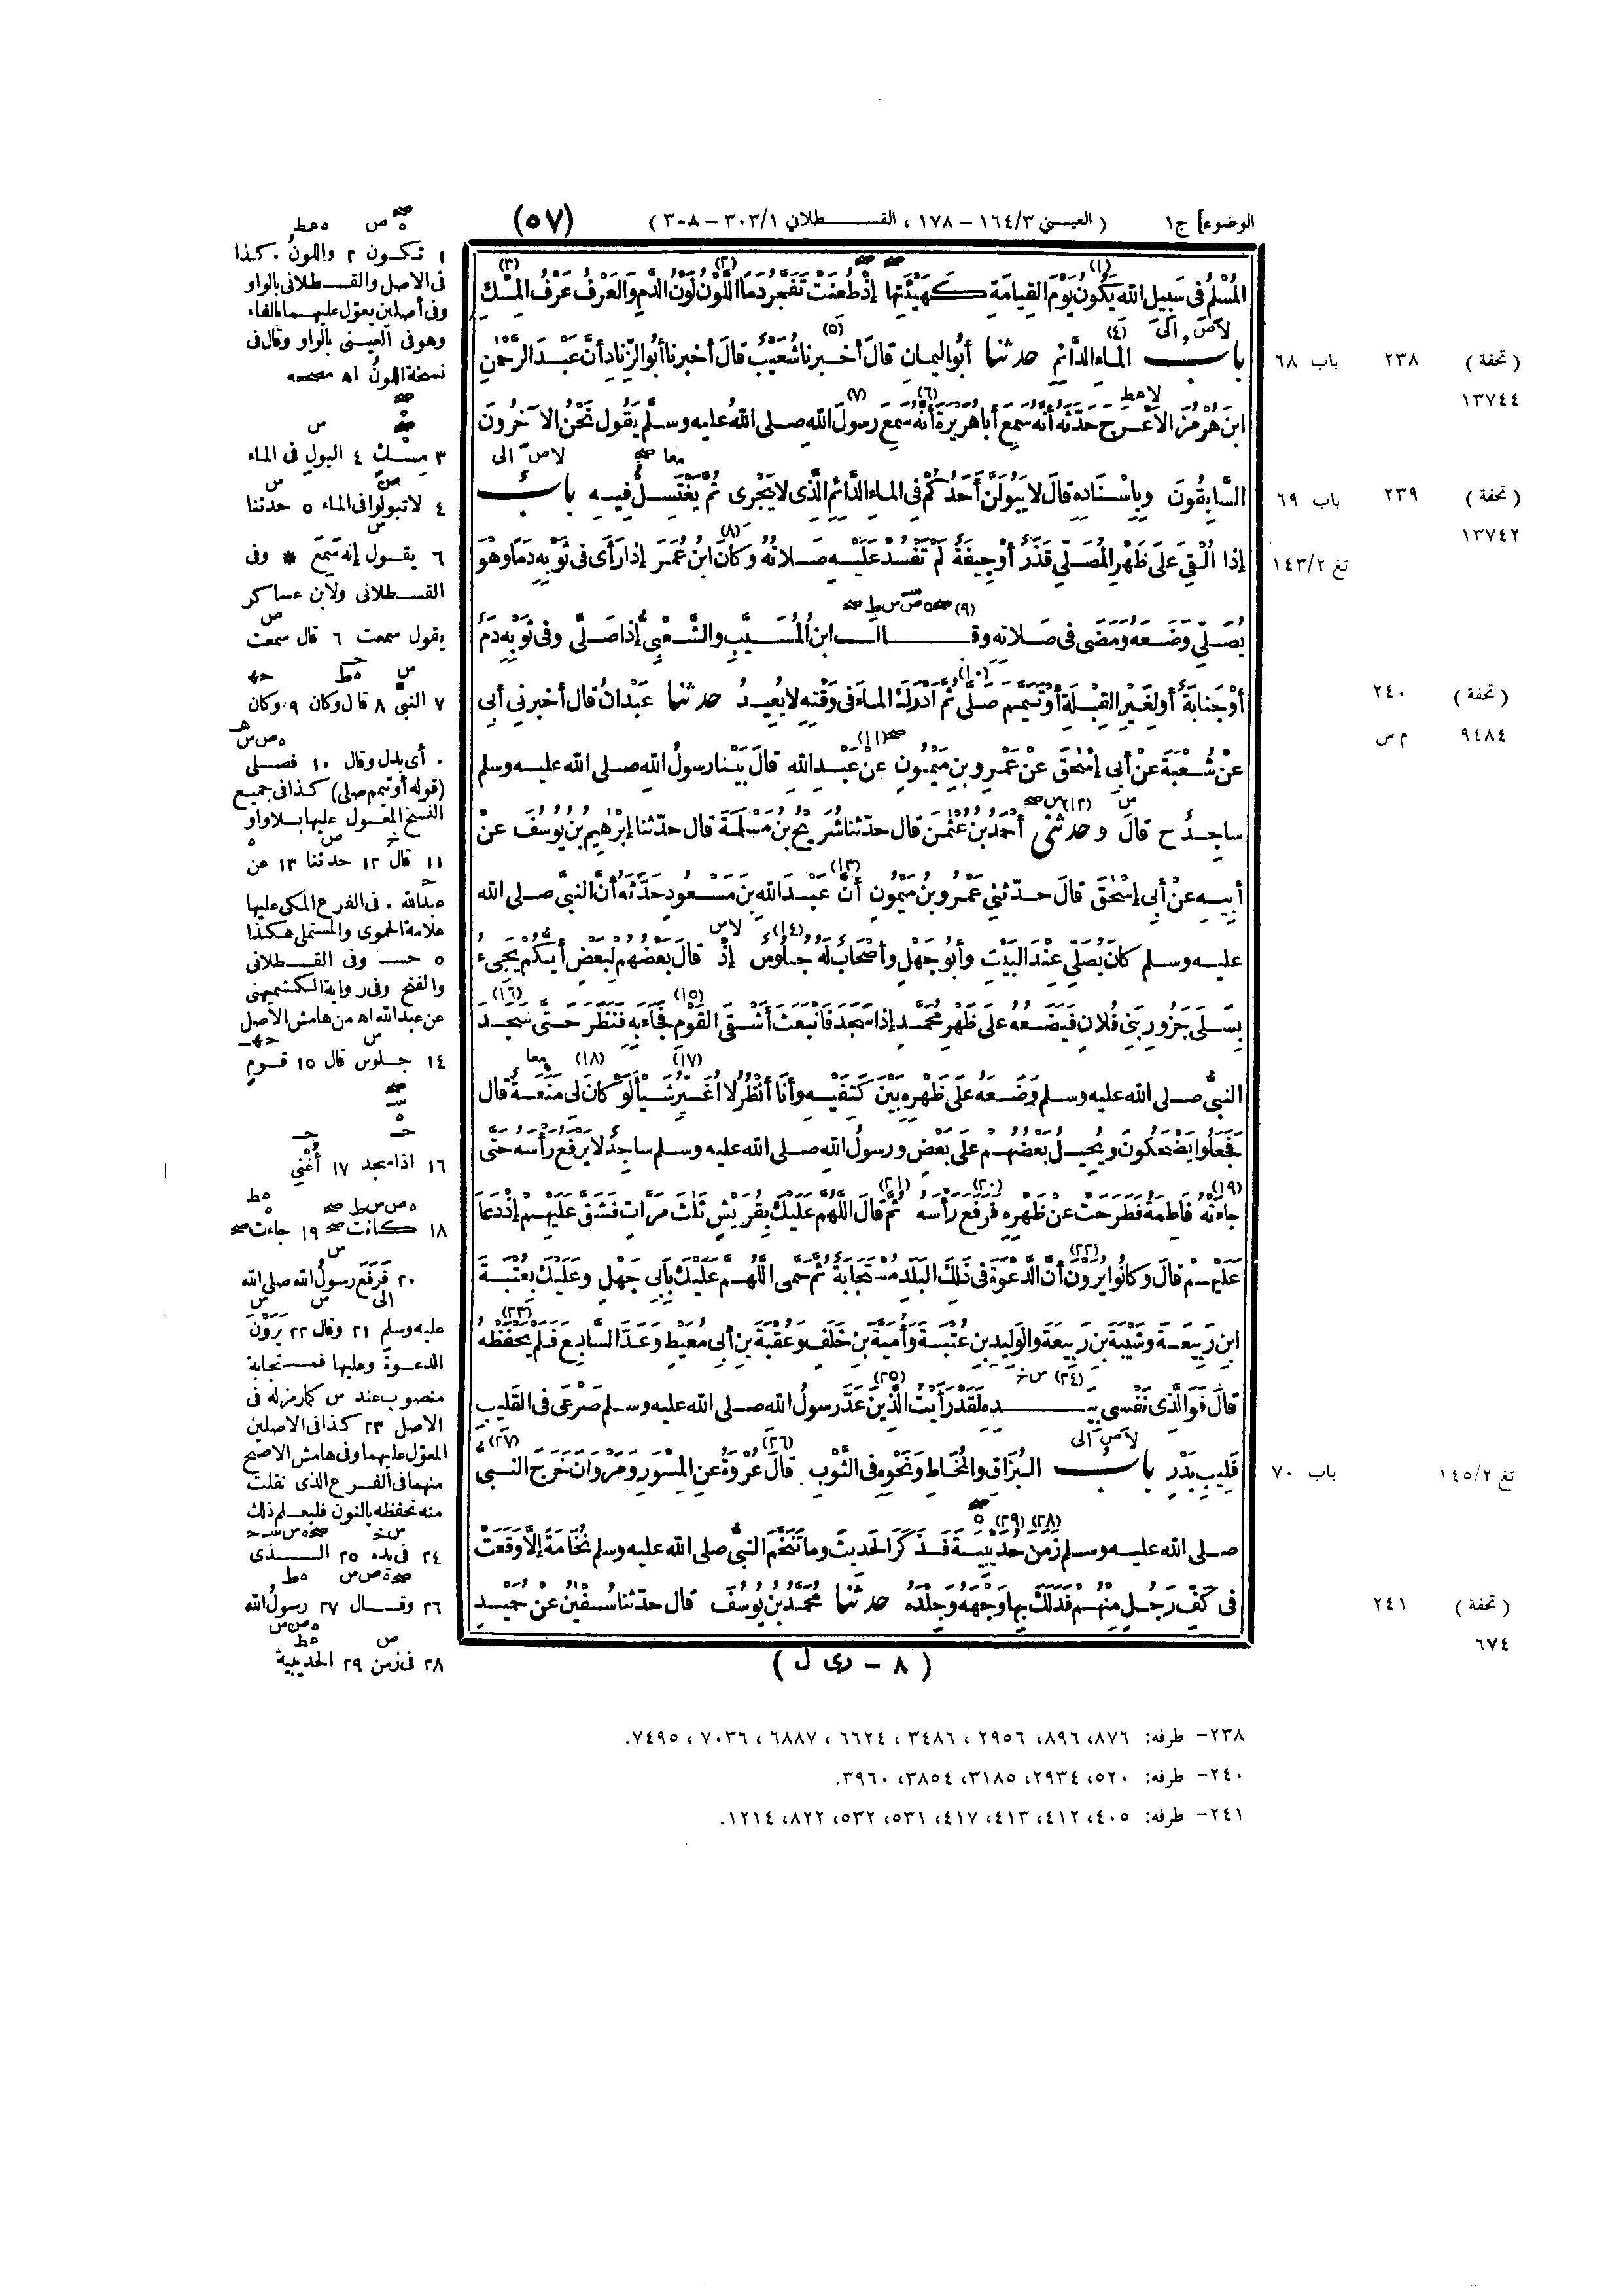 الوضوء] ج١ (العيني ١٦٤/٣ - ١٧٨، القسطلاني ٣٠٣/١ - ٣٠٨) (٥٧)
المُسْلِمُ فى سَبِيلِ الله يَكُونُ(١) يَوْمَ القِيامَةِ كَهَيْئَتِها إذْ طُعِنَتْ تَفَجَّرُ دَمًا اللَّوْنُ(٢) لَوْنُ الدَّمِ والعَرْفُ عَرْفُ المِسْكِ(٣)
بابُ الماءِ الدَّائِمِ(٤) حدثنا أبُو اليمانِ قالَ أخبرنا(٥) شُعَيْبٌ قالَ أخبرنا أبُو الزِّنادِ أنَّ عَبْدَ الرَّحْمٰنِ
ابنَ هُرْمُزَ الأَعْرَجَ حَدَّثَهُ أنَّهُ سَمِعَ أباهُرَيْرَةَ أنَّهُ(٦) سَمِعَ رسولَ الله(٧) صلى اللهُ عليه وسلَّم يَقُولُ نَحْنُ الآخِرُونَ
السَّابِقُونَ وبِإسْنَادِهِ قالَ لا يَبُولَنَّ أحَدُكُمْ فى الماءِ الدَّائِمِ الَّذِى لا يَجْرِى ثُمَّ يَغْتَسِلُ فِيهِ بابٌ
إذا أُلْقِىَ علَى ظَهْرِ المُصَلِّى قَذَرٌ أوْ جِيفَةٌ لَمْ تَفْسُدْ عَلَيْهِ صَلاتُهُ وكانَ(٨) ابنُ عُمَرَ إذا رَأَى فى ثَوْبِهِ دَمًا وهْوَ
يُصَلِّى وَضَعَهُ ومَضَى فى صَلاتِهِ وقالَ(٩) ابنُ المُسَيَّبِ والشَّعْبِىُّ إذا صَلَّى وفى ثَوْبِهِ دَمٌ
أوْ جَنابَةٌ أو لِغَيْرِ القِبْلَةِ أوْ تَيَمَّمَ صَلَّى(١٠) ثُمَّ أدْرَكَ الماءَ فى وَقْتِهِ لا يُعِيدُ حدثنا عَبْدانُ قال أخبرني أبى
عنْ شُعْبَةَ عنْ أبى إسْحٰقَ عنْ عَمْرِو بنِ مَيْمُونٍ عنْ(١١) عَبْدِ اللهِ قالَ بَيْنا رسولُ اللهِ صلى الله عليه وسلم
ساجِدٌ ح قالَ وحدثنى(١٢) أحْمَدُ بنُ عُثْمٰنَ قال حدّثنا شُرَيْحُ بنُ مَسْلَمَةَ قال حدّثنا إبْرٰهِيمُ بنُ يُوسُفَ عنْ
أبِيهِ عنْ أبى إسْحٰقَ قالَ حدّثنِي عَمْرُو بنُ مَيْمُونٍ أنَّ(١٣) عَبْدَ اللهِ بنَ مَسْعُودٍ حَدَّثَهُ أنَّ النبىَّ صلى الله
عليه وسلم كانَ يُصَلِّى عِنْدَ البَيْتِ وأبُو جَهْلٍ وأصْحابٌ لَهُ جُلُوسٌ(١٤) إذْ قالَ بَعْضُهُمْ لِبَعْضٍ أيُّكُمْ يَجِىءُ
بِسَلَى جَزُورِ بَنِى فُلانٍ فيَضَعُهُ علَى ظَهْرِ مُحَمَّدٍ إذا سَجَدَ فَانْبَعَثَ أشْقَى القَوْمِ(١٥) فَجَاءَ بِهِ فَنَظَرَ حَتَّى سَجَدَ(١٦)
النبىُّ صلى الله عليه وسلم وَضَعَهُ علَى ظَهْرِهِ بَيْنَ كَتِفَيْهِ وأنا أنْظُرُ لا أُغَيِّرُ(١٧) شَيْأً لَوْ كانَ(١٨) لِى مَنْعَةٌ قال
فَجَعَلُوا يَضْحَكُونَ ويُحِيلُ بَعْضُهُمْ علَى بَعْضٍ ورسولُ اللهِ صلى الله عليه وسلم ساجِدٌ لا يَرْفَعُ رَأْسَهُ حَتَّى
جاءَتْهُ(١٩) فَاطِمَةُ فَطَرَحَتْ عنْ ظَهْرِهِ فَرَفَعَ(٢٠) رَأْسَهُ ثُمَّ قالَ(٢١) اللَّهُمَّ عَلَيْكَ بِقُرَيْشٍ ثَلٰثَ مَرَّاتٍ فَشَقَّ عَلَيْهِمْ إذْ دَعَا
عَلَيْهِمْ قالَ وكانُوا يُرَوْنَ(٢٢) أنَّ الدَّعْوَةَ فى ذٰلِكَ البَلَدِ مُسْتَجَابَةٌ ثُمَّ سَمَّى اللَّهُمَّ عَلَيْكَ بِأَبِى جَهْلٍ وعَلَيْكَ بِعُتْبَةَ
ابنِ رَبِيعَةَ وشَيْبَةَ بنِ رَبِيعَةَ والوَلِيدِ بنِ عُتْبَةَ وأُمَيَّةَ بنِ خَلَفٍ وعُقْبَةَ بنِ أبى مُعَيْطٍ وعَدَّ السَّابِعَ فَلَمْ يَحْفَظْهُ(٢٣)
قالَ فَوَالَّذِى نَفْسِى بِيَدِهِ(٢٤) لَقَدْ رَأيْتُ الَّذِينَ(٢٥) عَدَّ رسولُ الله صلى الله عليه وسلم صَرْعَى فى القَلِيبِ
قَلِيبِ بَدْرٍ بابُ البُزَاقِ والمُخَاطِ ونَحْوِهِ فى الثَّوْبِ قالَ(٢٦) عُرْوَةُ عنِ المِسْوَرِ ومَرْوَانَ خَرَجَ النبى(٢٧)
صلى الله عليه وسلم زَمَنَ(٢٨) حُدَيْبِيَةَ(٢٩) فَذَكَرَ الحَدِيثَ وما تَنَخَّمَ النبىُّ صلى الله عليه وسلم نُخَامَةً إلَّا وَقَعَتْ
فى كَفِّ رَجُلٍ مِنْهُمْ فَدَلَكَ بِها وَجْهَهُ وجِلْدَهُ حدثنا مُحَمَّدُ بنُ يُوسُفَ قال حدّثنا سُفْيٰنُ عنْ حُمَيْدٍ
(٨ - رى ل)
باب ٦٨ ٢٣٨ (تحفة)
١٣٧٤٤
باب ٦٩ ٢٣٩ (تحفة)
١٣٧٤٢
تغ ١٤٣/٢
٢٤٠ (تحفة)
م س ٩٤٨٤
باب ٧٠ تغ ١٤٥/٢
٢٤١ (تحفة)
٦٧٤
١ تكون ٢ واللونُ . كذا
فى الاصل والقسطلانى بالواو
وفى أصلين يعوّل عليهما بالفاء
وهو فى العينى بالواو وقال فى
نسخة اللونُ اه مصححه
٣ مِسكٍ ٤ البولِ فى الماء
٤ لا تبولوا فى الماء ٥ حدثنا
٦ يقول إنه سَمِعَ * وفى
القسطلانى ولابن عساكر
يقول سمعت ٦ قال سمعت
٧ النبىَّ ٨ قال وكان ٩ وكان
. أى بدل وقال ١٠ فصلى
(قوله أو تيمم صلى) كذا فى جميع
النسخ المعول عليها بلا واو
١١ قال ١٢ حدثنا ١٣ عن
عبدالله . فى الفرع المكى عليها
علامة الحموى والمستملى هكذا
ه حسـ وفى القسطلانى
والفتح وفى رواية الكشميهنى
عن عبدالله اه من هامش الاصل
١٤ جلوس قال ١٥ قومٍ
١٦ اذا سجد ١٧ أُغْنِي
١٨ كانت ١٩ جاءت
٢٠ فَرَفَعَ رسولُ الله صلى الله
عليه وسلم ٢١ وقال ٢٢ يَرَوْنَ
الدعوةَ وعليها فمستجابة
منصوب عند س كما رمز له فى
الاصل ٢٣ كذا فى الاصلين
المعول عليهما وفى هامش الاصح
منهما فى الفرع الذى نقلت
منه نحفظه بالنون فليعلم ذلك
٢٤ فى يده ٢٥ الذى
٢٦ وقال ٢٧ رسولُ الله
٢٨ فى زمن ٢٩ الحديبية
٢٣٨- طرفه: ٨٧٦، ٨٩٦، ٢٩٥٦، ٣٤٨٦، ٦٦٢٤، ٦٨٨٧، ٧٠٣٦، ٧٤٩٥.
٢٤٠- طرفه: ٥٢٠، ٢٩٣٤، ٣١٨٥، ٣٨٥٤، ٣٩٦٠.
٢٤١- طرفه: ٤٠٥، ٤١٢، ٤١٣، ٤١٧، ٥٣١، ٥٣٢، ٨٢٢، ١٢١٤.